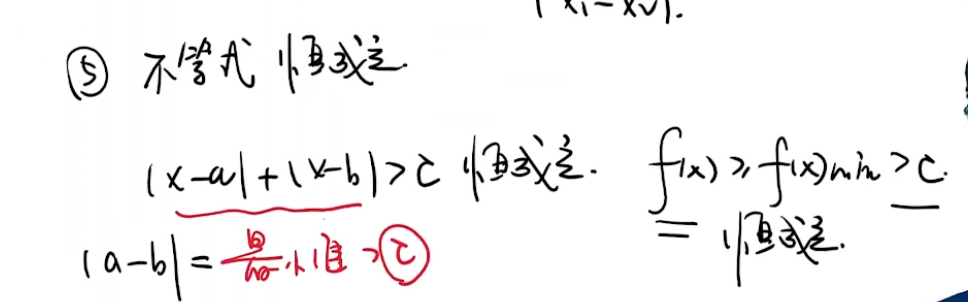 |x₁-x₂|.
⑤ 不等式 恒成立.
|x-a|+|x-b|>c 恒成立. f(x)≥f(x)min>c.
恒成立.
|a-b|=最小值>c